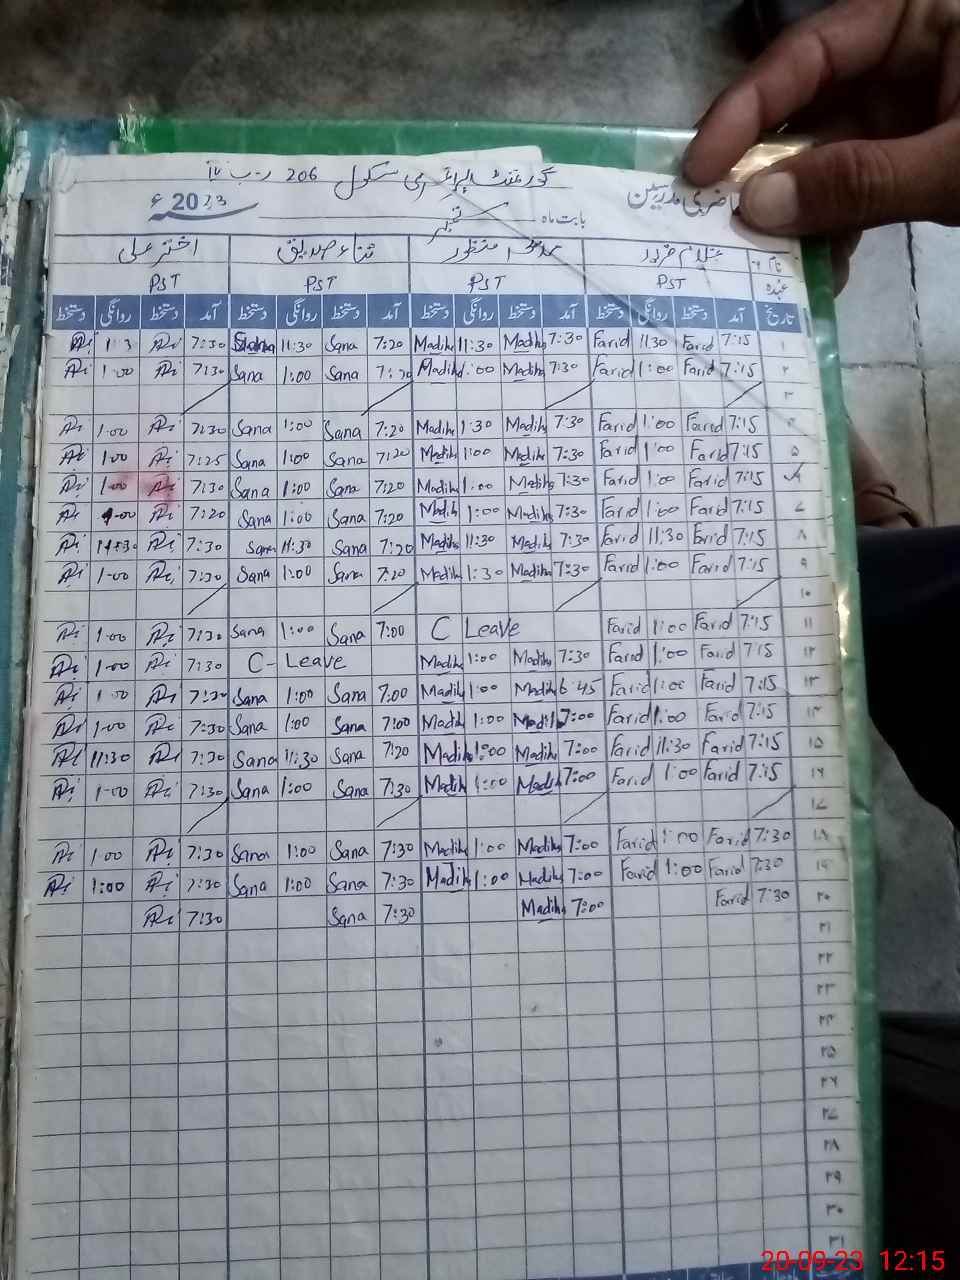 گورنمنٹ پرائمری سکول 206 ر-ب
حاضری مدرسین بابت ماہ ستمبر 2023ء
نام غلام فرید مدیحہ منظور ثناء صدیق اختر علی
عہدہ PST PST PST PST
تاریخ آمد دستخط روانگی دستخط آمد دستخط روانگی دستخط آمد دستخط روانگی دستخط آمد دستخط روانگی دستخط
۱ 7:15 Farid 11:30 Farid 7:30 Madiha 11:30 Madiha 7:20 Sana 11:30 7:30
۲ 7:15 Farid 1:00 Farid 7:30 Madiha 1:00 Madiha Sana 1:00 Sana 7:30 1:00
۳
۴ 7:15 Farid 1:00 Farid 7:30 Madiha 1:30 Madiha 7:20 Sana 1:00 Sana 7:30 1:00
۵ 7:15 Farid 1:00 Farid 7:30 Madiha 1:00 Madiha 7:20 Sana 1:00 Sana 7:25 1:00
۶ 7:15 Farid 1:00 Farid 7:30 Madiha 1:00 Madiha 7:20 Sana 1:00 Sana 7:30 1:00
۷ 7:15 Farid 1:00 Farid 7:30 Madiha 1:00 Madiha 7:20 Sana 1:00 Sana 7:20
۸ 7:15 Farid 11:30 Farid 7:30 Madiha 11:30 Madiha 7:20 Sana 11:30 Sana 7:30 11:30
۹ 7:15 Farid 1:00 Farid 7:30 Madiha 1:30 Madiha 7:20 Sana 1:00 Sana 7:30 1:00
۱۰
۱۱ 7:15 Farid 1:00 Farid C Leave 7:00 Sana 1:00 Sana 7:30 1:00
۱۲ 7:15 Farid 1:00 Farid 7:30 Madiha 1:00 Madiha C- Leave 7:30 1:00
۱۳ 7:15 Farid 1:00 Farid 6:45 Madiha 1:00 Madiha 7:00 Sana 1:00 Sana 7:30 1:00
۱۴ 7:15 Farid 1:00 Farid 7:00 Madiha 1:00 Madiha 7:00 Sana 1:00 Sana 7:30 1:00
۱۵ 7:15 Farid 11:30 Farid 7:00 Madiha 1:00 Madiha 7:20 Sana 11:30 Sana 7:30 11:30
۱۶ 7:15 Farid 1:00 Farid 7:00 Madiha 1:00 Madiha 7:30 Sana 1:00 Sana 7:30 1:00
۱۷
۱۸ 7:30 Farid 1:00 Farid 7:00 Madiha 1:00 Madiha 7:30 Sana 1:00 Sana 7:30 1:00
۱۹ 7:30 Farid 1:00 Farid 7:00 Madiha 1:00 Madiha 7:30 Sana 1:00 Sana 7:30 1:00
۲۰ 7:30 Farid 7:00 Madiha 7:30 Sana 7:30
۲۱
۲۲
۲۳
۲۴
۲۵
۲۶
۲۷
۲۸
۲۹
۳۰
۳۱
20-09-23 12:15